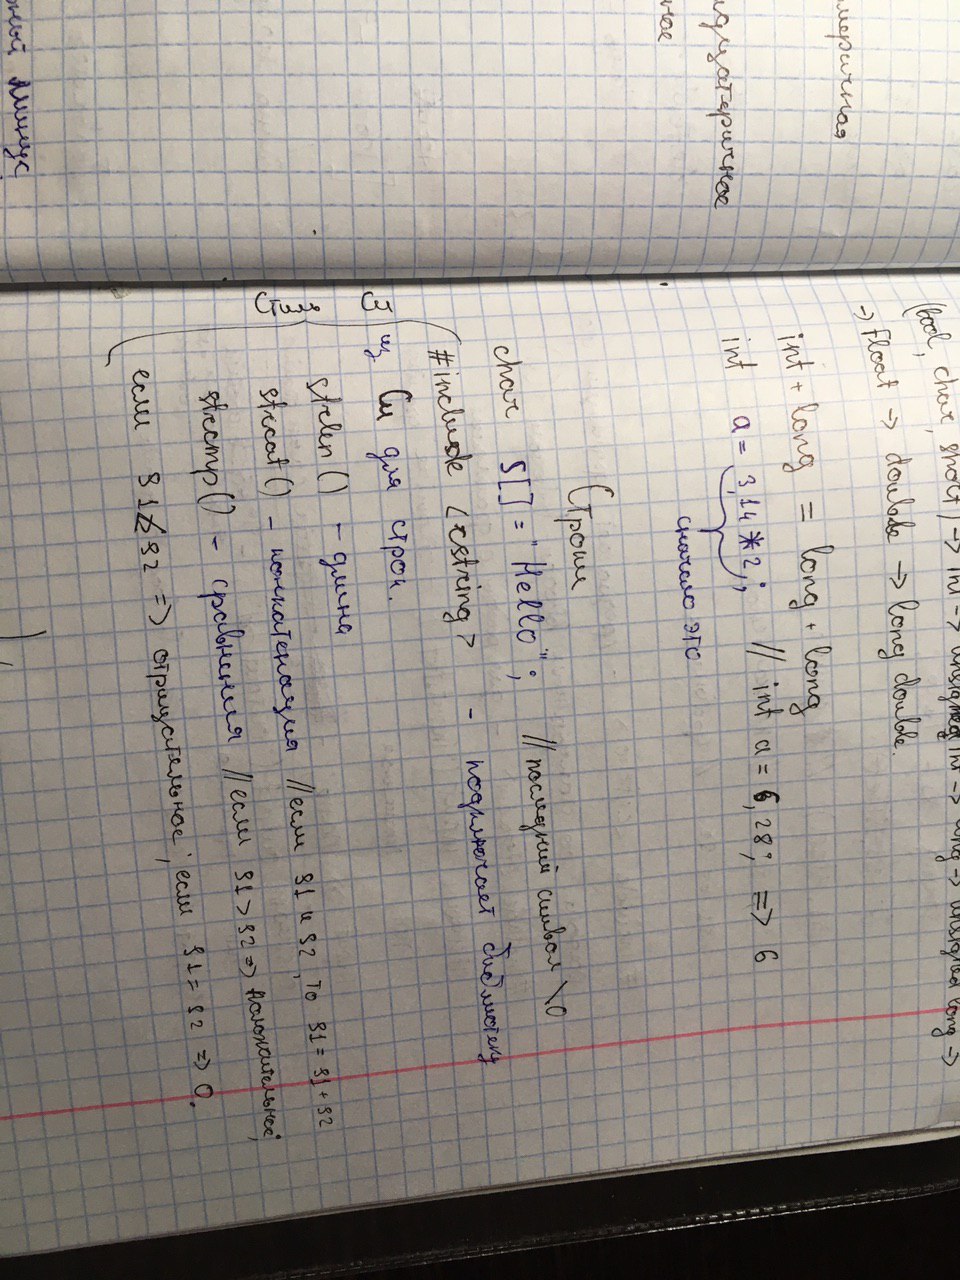 (bool, char, short) -> int -> unsigned int -> long -> unsigned long ->
-> float -> double -> long double.
int + long = long + long
int a = 3,14 * 2; // int a = 6,28; => 6
сначало это
Строки
char S[] = "Hello"; // последний символ \0
#include <cstring> - подключает библиотеку
из Си для строк.
strlen() - длина
strcat() - конкатенация // если s1 и s2, то s1 = s1 + s2
strcmp() - сравнения // если s1 > s2 => положительное;
если s1 < s2 => отрицательное; если s1 = s2 => 0.
меричная
дцатеричное
ное
ный минус